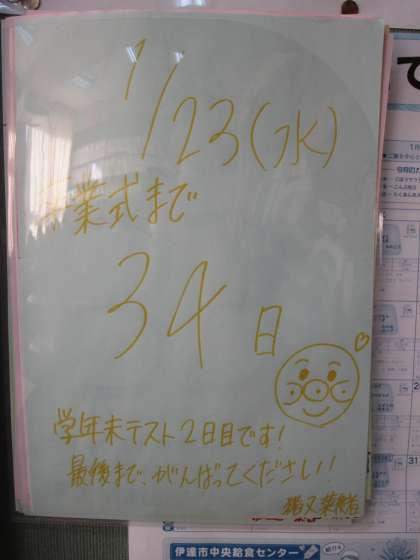 1/23(水)
卒業式まで
34日
学年末テスト2日目です!
最後まで、がんばってください!
伊達市中央給食センター
31